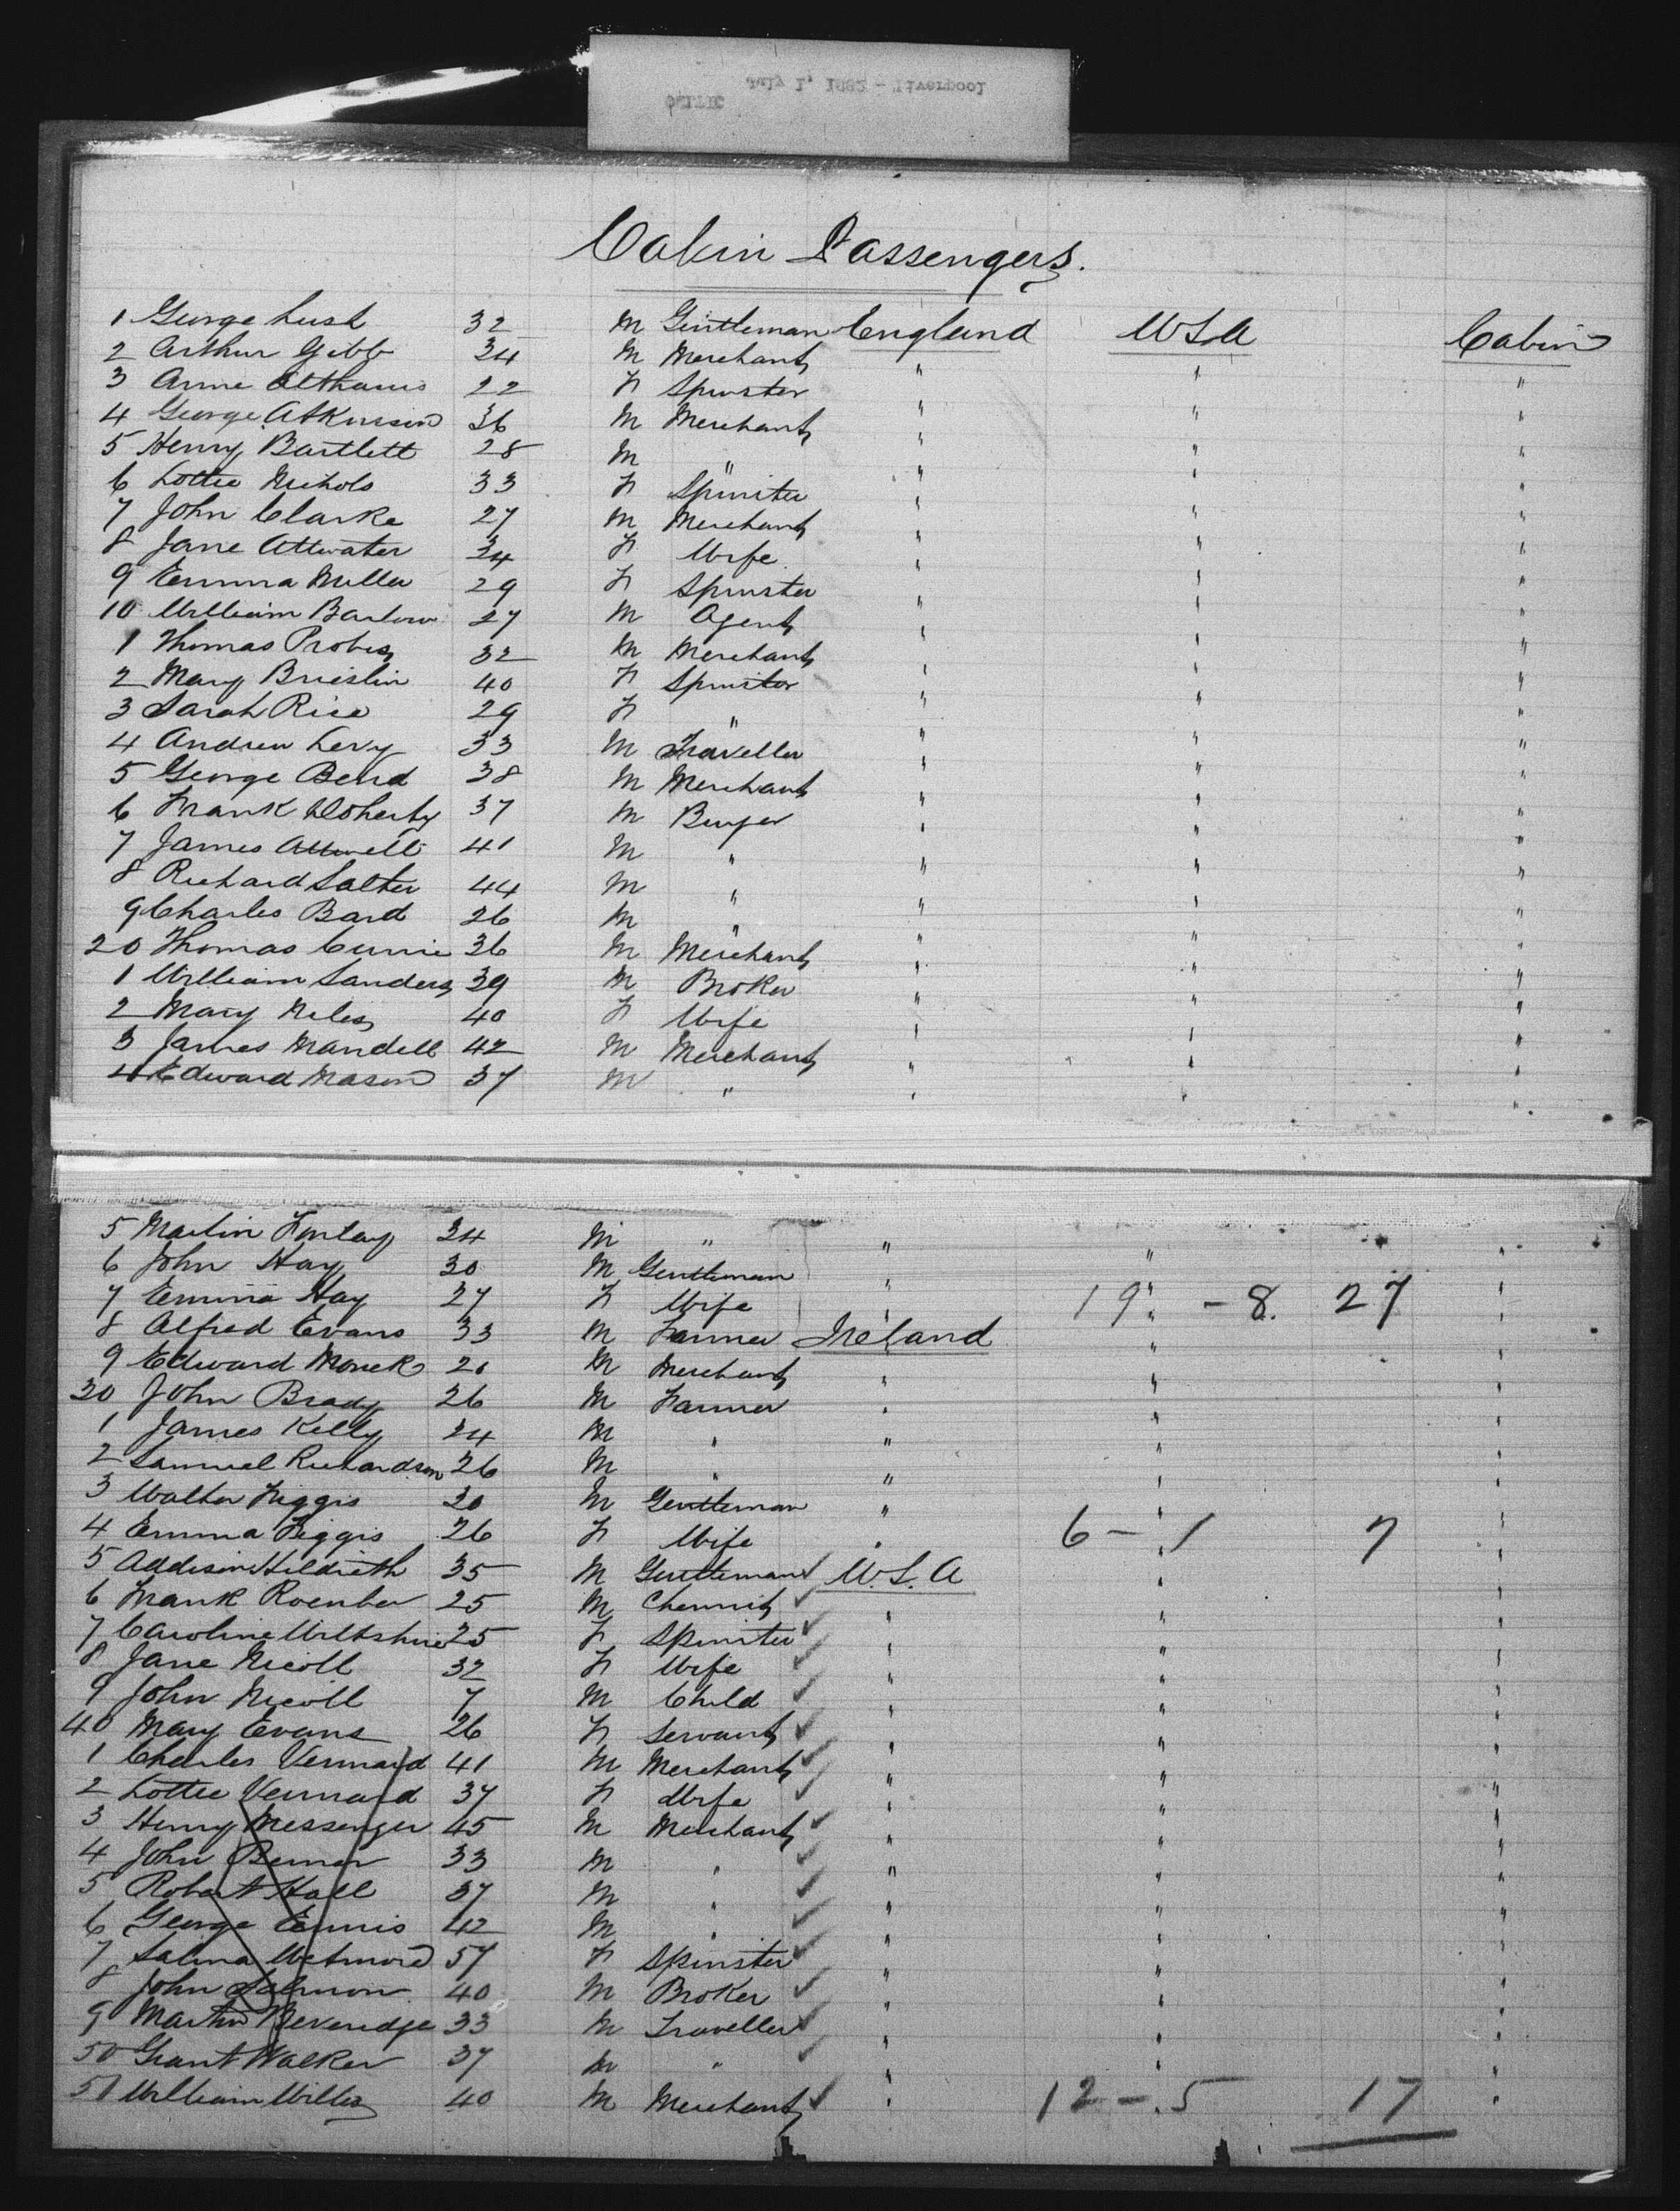 CELTIC July 1, 1882 - Liverpool
Cabin Passengers.
1 George Lush 32 M Gentleman England USA Cabin
2 Arthur Gibb 34 M Merchant " " "
3 Anne 22 F Spinster " " "
4 George Atkinson 36 M Merchant " " "
5 Henry Bartlett 28 M " " " "
6 Lottie Nichols 33 F Spinster " " "
7 John Clarke 27 M Merchant " " "
8 Jane Attwater 34 F Wife " " "
9 Emma Miller 29 F Spinster " " "
10 William Barlow 27 M Agent " " "
1 Thomas 32 M Merchant " " "
2 Mary Brieslin 40 F Spinster " " "
3 Sarah Rice 29 F " " " "
4 Andrew Levy 33 M Traveller " " "
5 George Bend 38 M Merchant " " "
6 Frank Doherty 37 M Buyer " " "
7 James Attwell 41 M " " " "
8 Richard Salter 44 M " " " "
9 Charles Bard 26 M " " " "
20 Thomas Currie 36 M Merchant " " "
1 William Sanders 39 M Broker " " "
2 Mary Niles 40 F Wife " " "
3 James Mandell 42 M Merchant " " "
4 Edward Mason 37 M " " " "
5 Martin Finlay 34 M " " " "
6 John Hay 30 M Gentleman " " "
7 Emma Hay 27 F Wife " " 19 - 8. 27 "
8 Alfred Evans 33 M Farmer Ireland " "
9 Edward Monck M Merchant " " "
30 John Brady 26 M Farmer " " "
1 James Kelly 24 M " " " "
2 Samuel Richardson 26 M " " " "
3 Walter Figgis 30 M Gentleman " " "
4 Emma Figgis 26 F Wife " 6 - 1 7 "
5 Addison Hildreth 35 M Gentleman U.S.A " "
6 Frank 25 M Chemist " " "
7 Caroline Wiltshire 25 F Spinster " " "
8 Jane Nicoll 32 F Wife " " "
9 John Nicoll 7 M Child " " "
40 Mary Evans 26 F Servant " " "
1 Charles Vennard 41 M Merchant " " "
2 Lottie Vennard 37 F Wife " " "
3 Henry Messenger 45 M Merchant " " "
4 John 33 M " " " "
5 Robert Hall 37 M " " " "
6 George Ennis 42 M " " " "
7 Salina Wetmore 57 F Spinster " " "
8 John Salmon 40 M Broker " " "
9 Martin Beveridge 33 M Traveller " " "
50 Grant Walker 37 M " " " "
51 William Willis 40 M Merchant " 12 - 5 17 "